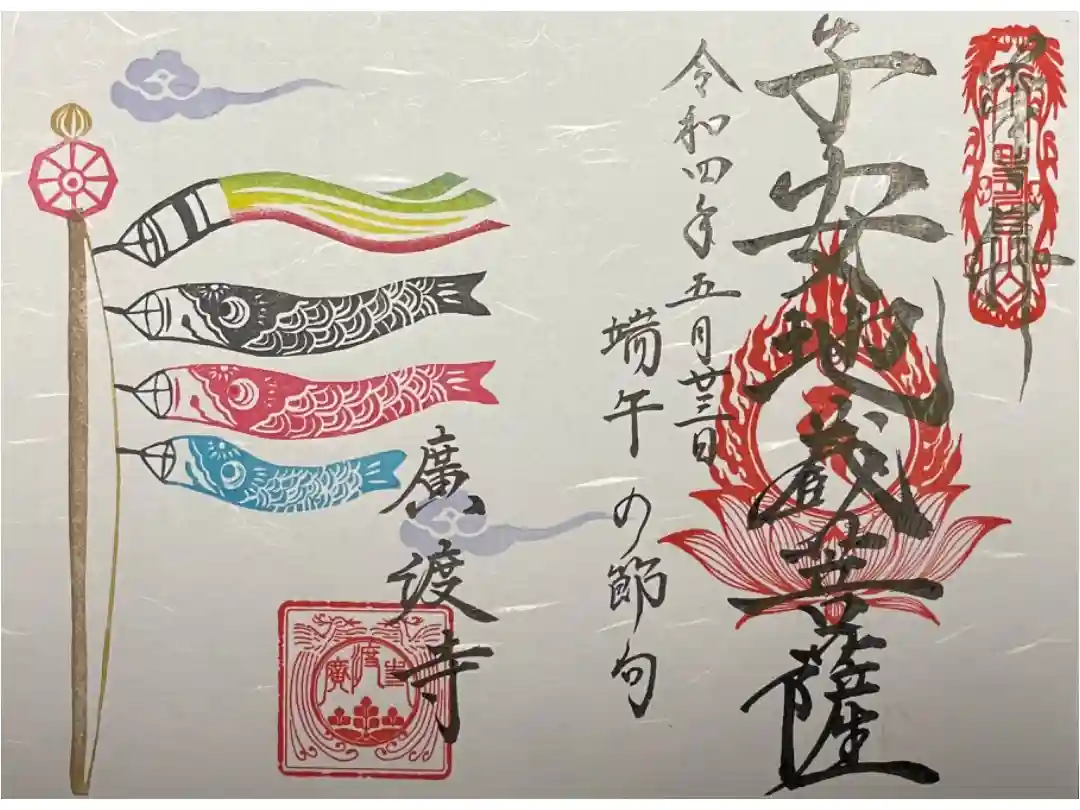 奉拝
子安地蔵菩薩
令和四年五月廿三日
端午の節句
廣渡寺